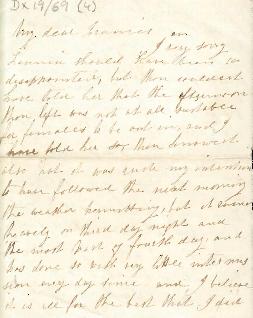 Dx 19/69 (4)
My dear Francis
I am very sorry
Fannie should have been so
disappointed, but thou couldest
have told her that the afternoon
thou left was not at all suitable
for females to be out in, and I
have told her so thou knowest
also that it was quite my intention
to have followed the next morning
the weather permitting, but it rained
heavily on third day night and
the most part of fourth day, and
has done so with very little intermis
sion every day since and I believe
it is all for the best that I did